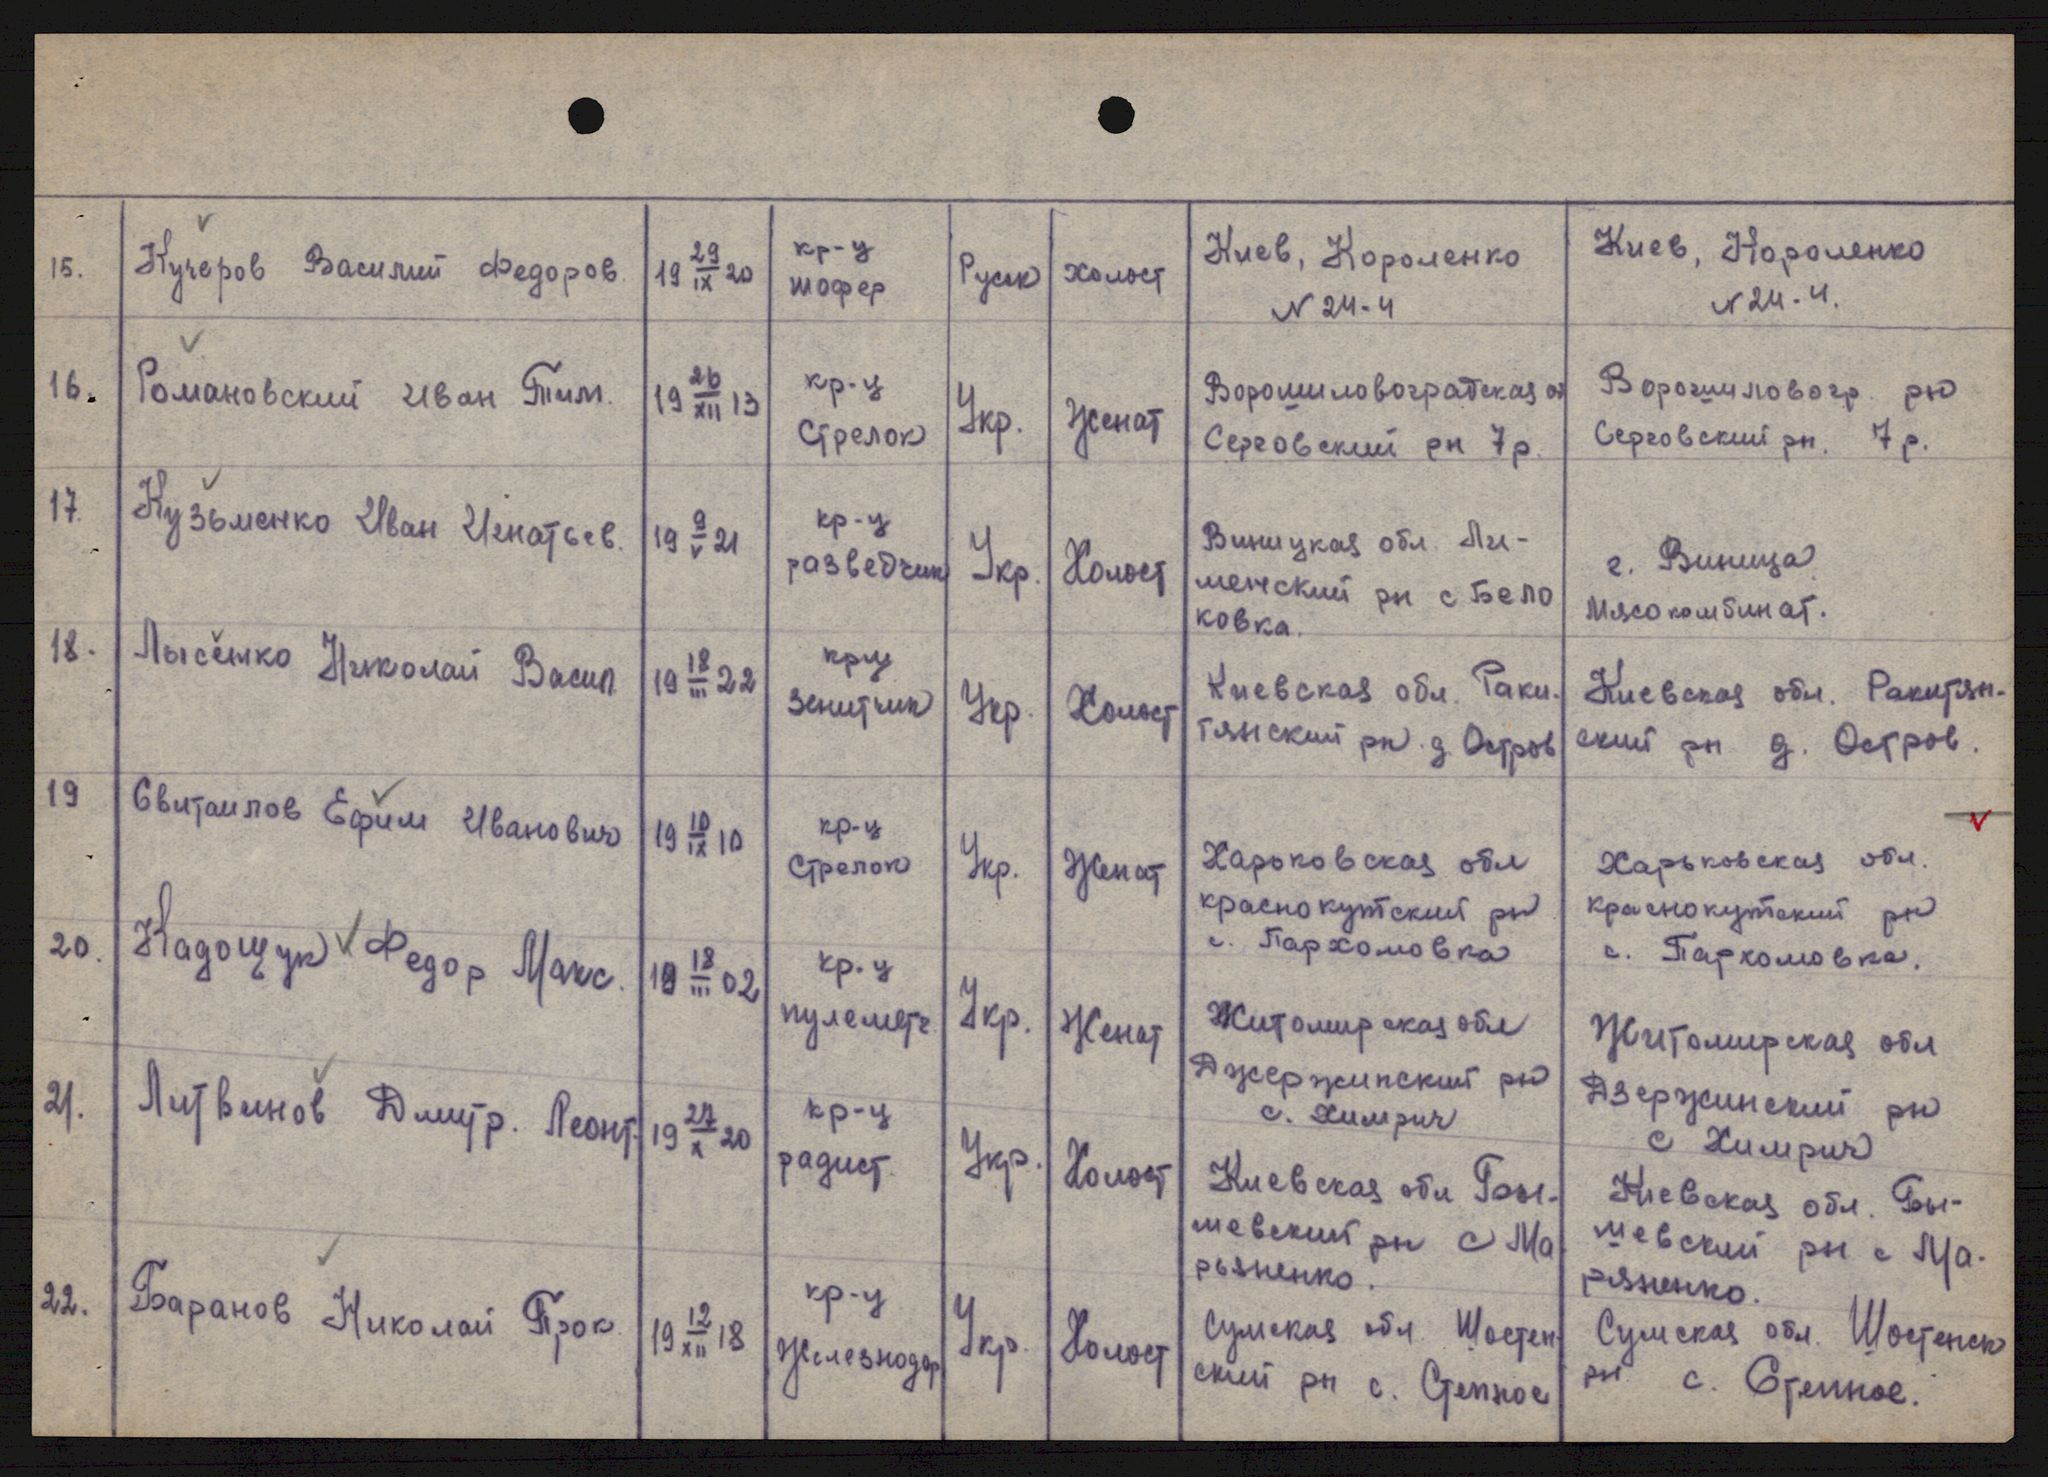 15. Кучеров Василий Федоров. 19 29/IX 20 кр-ц шофер Русск холост Киев, Короленко N 24-4 Киев, Короленко N 24-4.
16. Романовский Иван Тим. 19 26/XII 13 кр-ц Стрелок Укр. Женат Ворошиловоградская об Серговский рн 7 р. Ворошиловогр. рн Серговский рн. 7 р.
17. Кузьменко Иван Игнатьев. 19 9/V 21 кр-ц разведчик Укр. Холост Виницкая обл. Ли-
менский рн с Бело
ковка.
г. Виница
Мясокомбинат.
18. Лысенко Николай Васил. 19 18/III 22 кр-ц зенитчик Укр. Холост Киевская обл. Раки-
тянский рн. д. Остров
Киевская обл. Ракитян-
ский рн д. Остров.
19 Свитаилов Ефим Иванович 19 10/IX 10 кр-ц Стрелок Укр. Женат Харьковская обл
краснокутский рн
с. Пархомовка
Харьковская обл.
краснокутский рн
с. Пархомовка.
20. Кадощук Федор Макс. 19 18/III 02 кр-ц пулеметч. Укр. Женат Житомирская обл
Джержинский рн
с. Химрич
Житомирская обл
Дзержинский рн
с Химрич
21. Литвинов Дмитр. Леонт. 19 27/X 20 кр-ц радист. Укр. Холост Киевская обл Бы-
шевский рн с Ма
рьяненко.
Киевская обл. Бы-
шевский рн с Ма-
ряненко.
22. Баранов Николай Прок. 19 12/XII 18 кр-ц Железнодор Укр. Холост Сумская обл. Шостен-
ский рн с. Степное
Сумская обл. Шостенск
рн с. Степное.